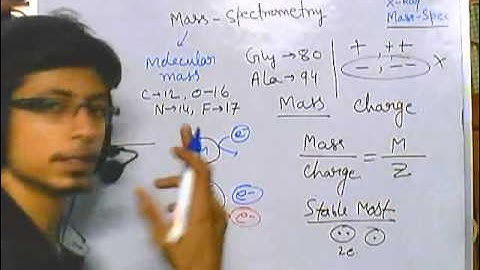 Mass-Spectrometry
X-Ray
Mass-Spec
Molecular
mass
C→12, O-16
N→14, F→17
Gly→80
Ala→94
+, ++
-, -- X
Mass charge
Mass
Charge
= M
Z
Stable Most
2e
e-
e-